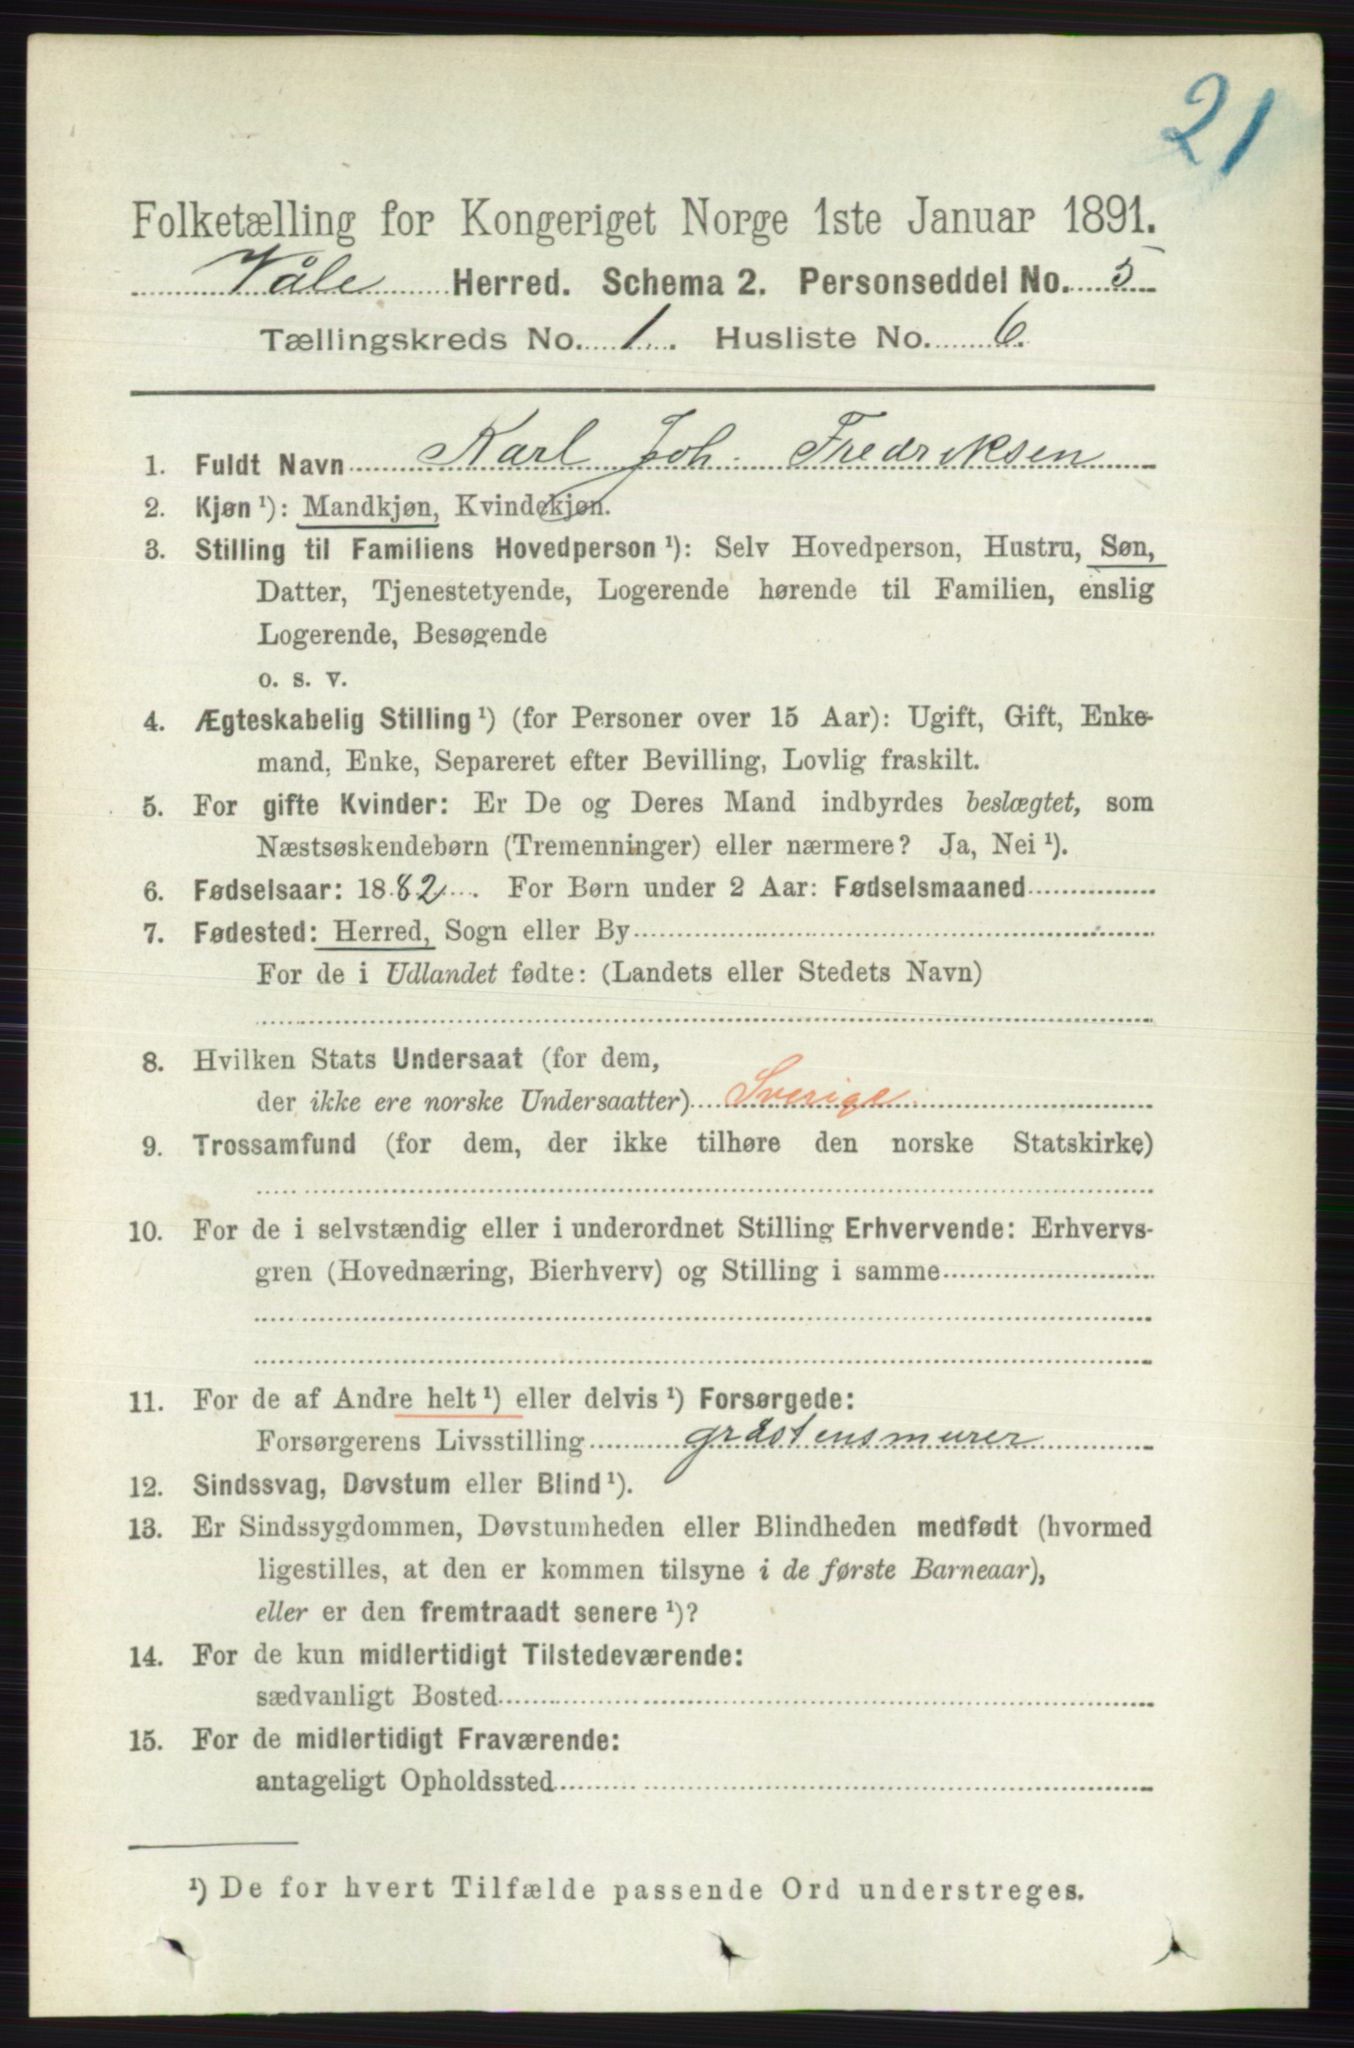 21
Folketælling for Kongeriget Norge 1ste Januar 1891.
Våle Herred. Schema 2. Personseddel No. 5
Tællingskreds No. 1. Husliste No. 6.
1. Fuldt Navn Karl Joh. Fredriksen
2. Kjøn ¹): Mandkjøn, Kvindekjøn.
3. Stilling til Familiens Hovedperson ¹): Selv Hovedperson, Hustru, Søn,
Datter, Tjenestetyende, Logerende hørende til Familien, enslig
Logerende, Besøgende
o. s. v.
4. Ægteskabelig Stilling ¹) (for Personer over 15 Aar): Ugift, Gift, Enke-
mand, Enke, Separeret efter Bevilling, Lovlig fraskilt.
5. For gifte Kvinder: Er De og Deres Mand indbyrdes beslægtet, som
Næstsøskendebørn (Tremenninger) eller nærmere? Ja, Nei ¹).
6. Fødselsaar: 1882. For Børn under 2 Aar: Fødselsmaaned
7. Fødested: Herred, Sogn eller By
For de i Udlandet fødte: (Landets eller Stedets Navn)
8. Hvilken Stats Undersaat (for dem,
der ikke ere norske Undersaatter) Sverige
9. Trossamfund (for dem, der ikke tilhøre den norske Statskirke)
10. For de i selvstændig eller i underordnet Stilling Erhvervende: Erhvervs-
gren (Hovednæring, Bierhverv) og Stilling i samme
11. For de af Andre helt ¹) eller delvis ¹) Forsørgede:
Forsørgerens Livsstilling gråstensmurer
12. Sindssvag, Døvstum eller Blind ¹).
13. Er Sindssygdommen, Døvstumheden eller Blindheden medfødt (hvormed
ligestilles, at den er kommen tilsyne i de første Barneaar),
eller er den fremtraadt senere ¹)?
14. For de kun midlertidigt Tilstedeværende:
sædvanligt Bosted
15. For de midlertidigt Fraværende:
antageligt Opholdssted
¹) De for hvert Tilfælde passende Ord understreges.